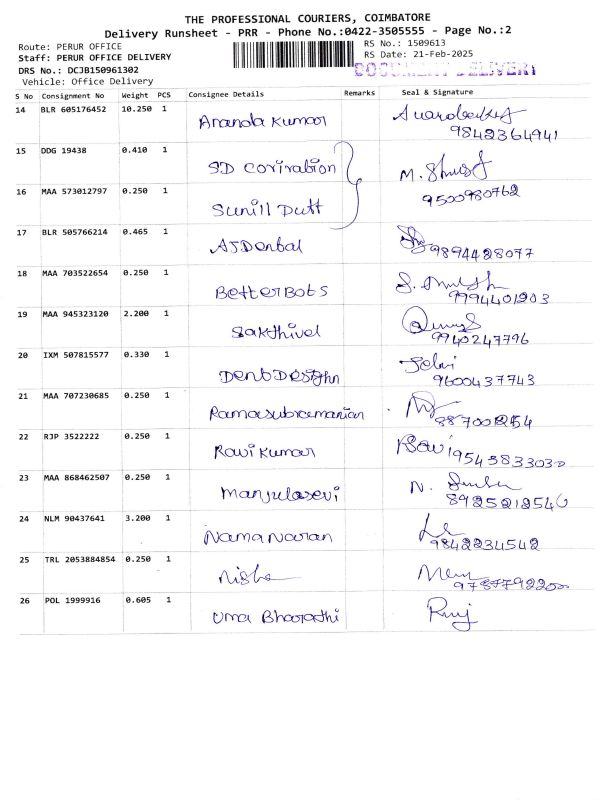 THE PROFESSIONAL COURIERS, COIMBATORE
Delivery Runsheet - PRR - Phone No.:0422-3505555 - Page No.:2
Route: PERUR OFFICE RS No.: 1509613
Staff: PERUR OFFICE DELIVERY RS Date: 21-Feb-2025
DRS No.: DCJB150961302 DOCUMENT DELIVERY
Vehicle: Office Delivery
S No Consignment No Weight PCS Consignee Details Remarks Seal & Signature
14 BLR 605176452 10.250 1 Ananda Kumar
9842364941
15 DDG 19438 0.410 1 SD Corivation M.
16 MAA 573012797 0.250 1 Sunill Dutt 9500980762
17 BLR 505766214 0.465 1 AJDental 9894428077
18 MAA 703522654 0.250 1 BetterBots S.
9994401203
19 MAA 945323120 2.200 1 Sakthivel
9940247796
20 IXM 507815577 0.330 1 DentDesighn Selvi
9600437743
21 MAA 707230685 0.250 1 Ramasubramanian
22 RJP 3522222 0.250 1 Ravi Kumar Ravi
23 MAA 868462507 0.250 1 Manjulasevi N.
8925212540
24 NLM 90437641 3.200 1 Namanaran
9842234542
25 TRL 2053884854 0.250 1 Nisha
26 POL 1999916 0.605 1 Uma Bharathi